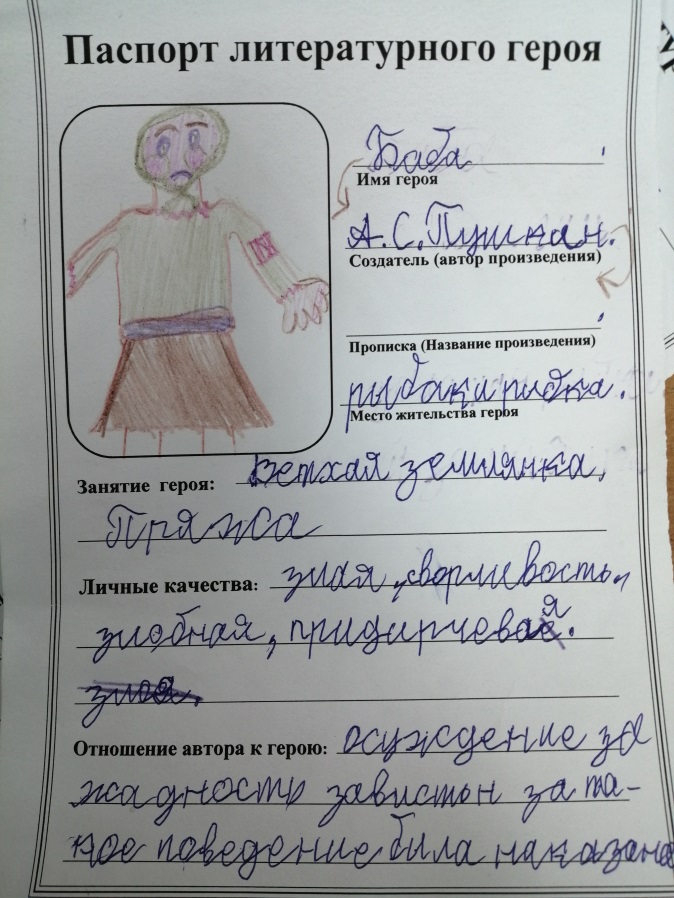 Паспорт литературного героя
Баба
Имя героя
А.С.Пушкин.
Создатель (автор произведения)
Прописка (Название произведения)
рыбак и рыбка.
Место жительства героя
Занятие героя: Ветхая землянка,
Пряжа
Личные качества: злая, сворливость,
злобная, придирчевая.
злоя.
Отношение автора к герою: осуждение за
жадность завистон за та-
кое поведение была наказана